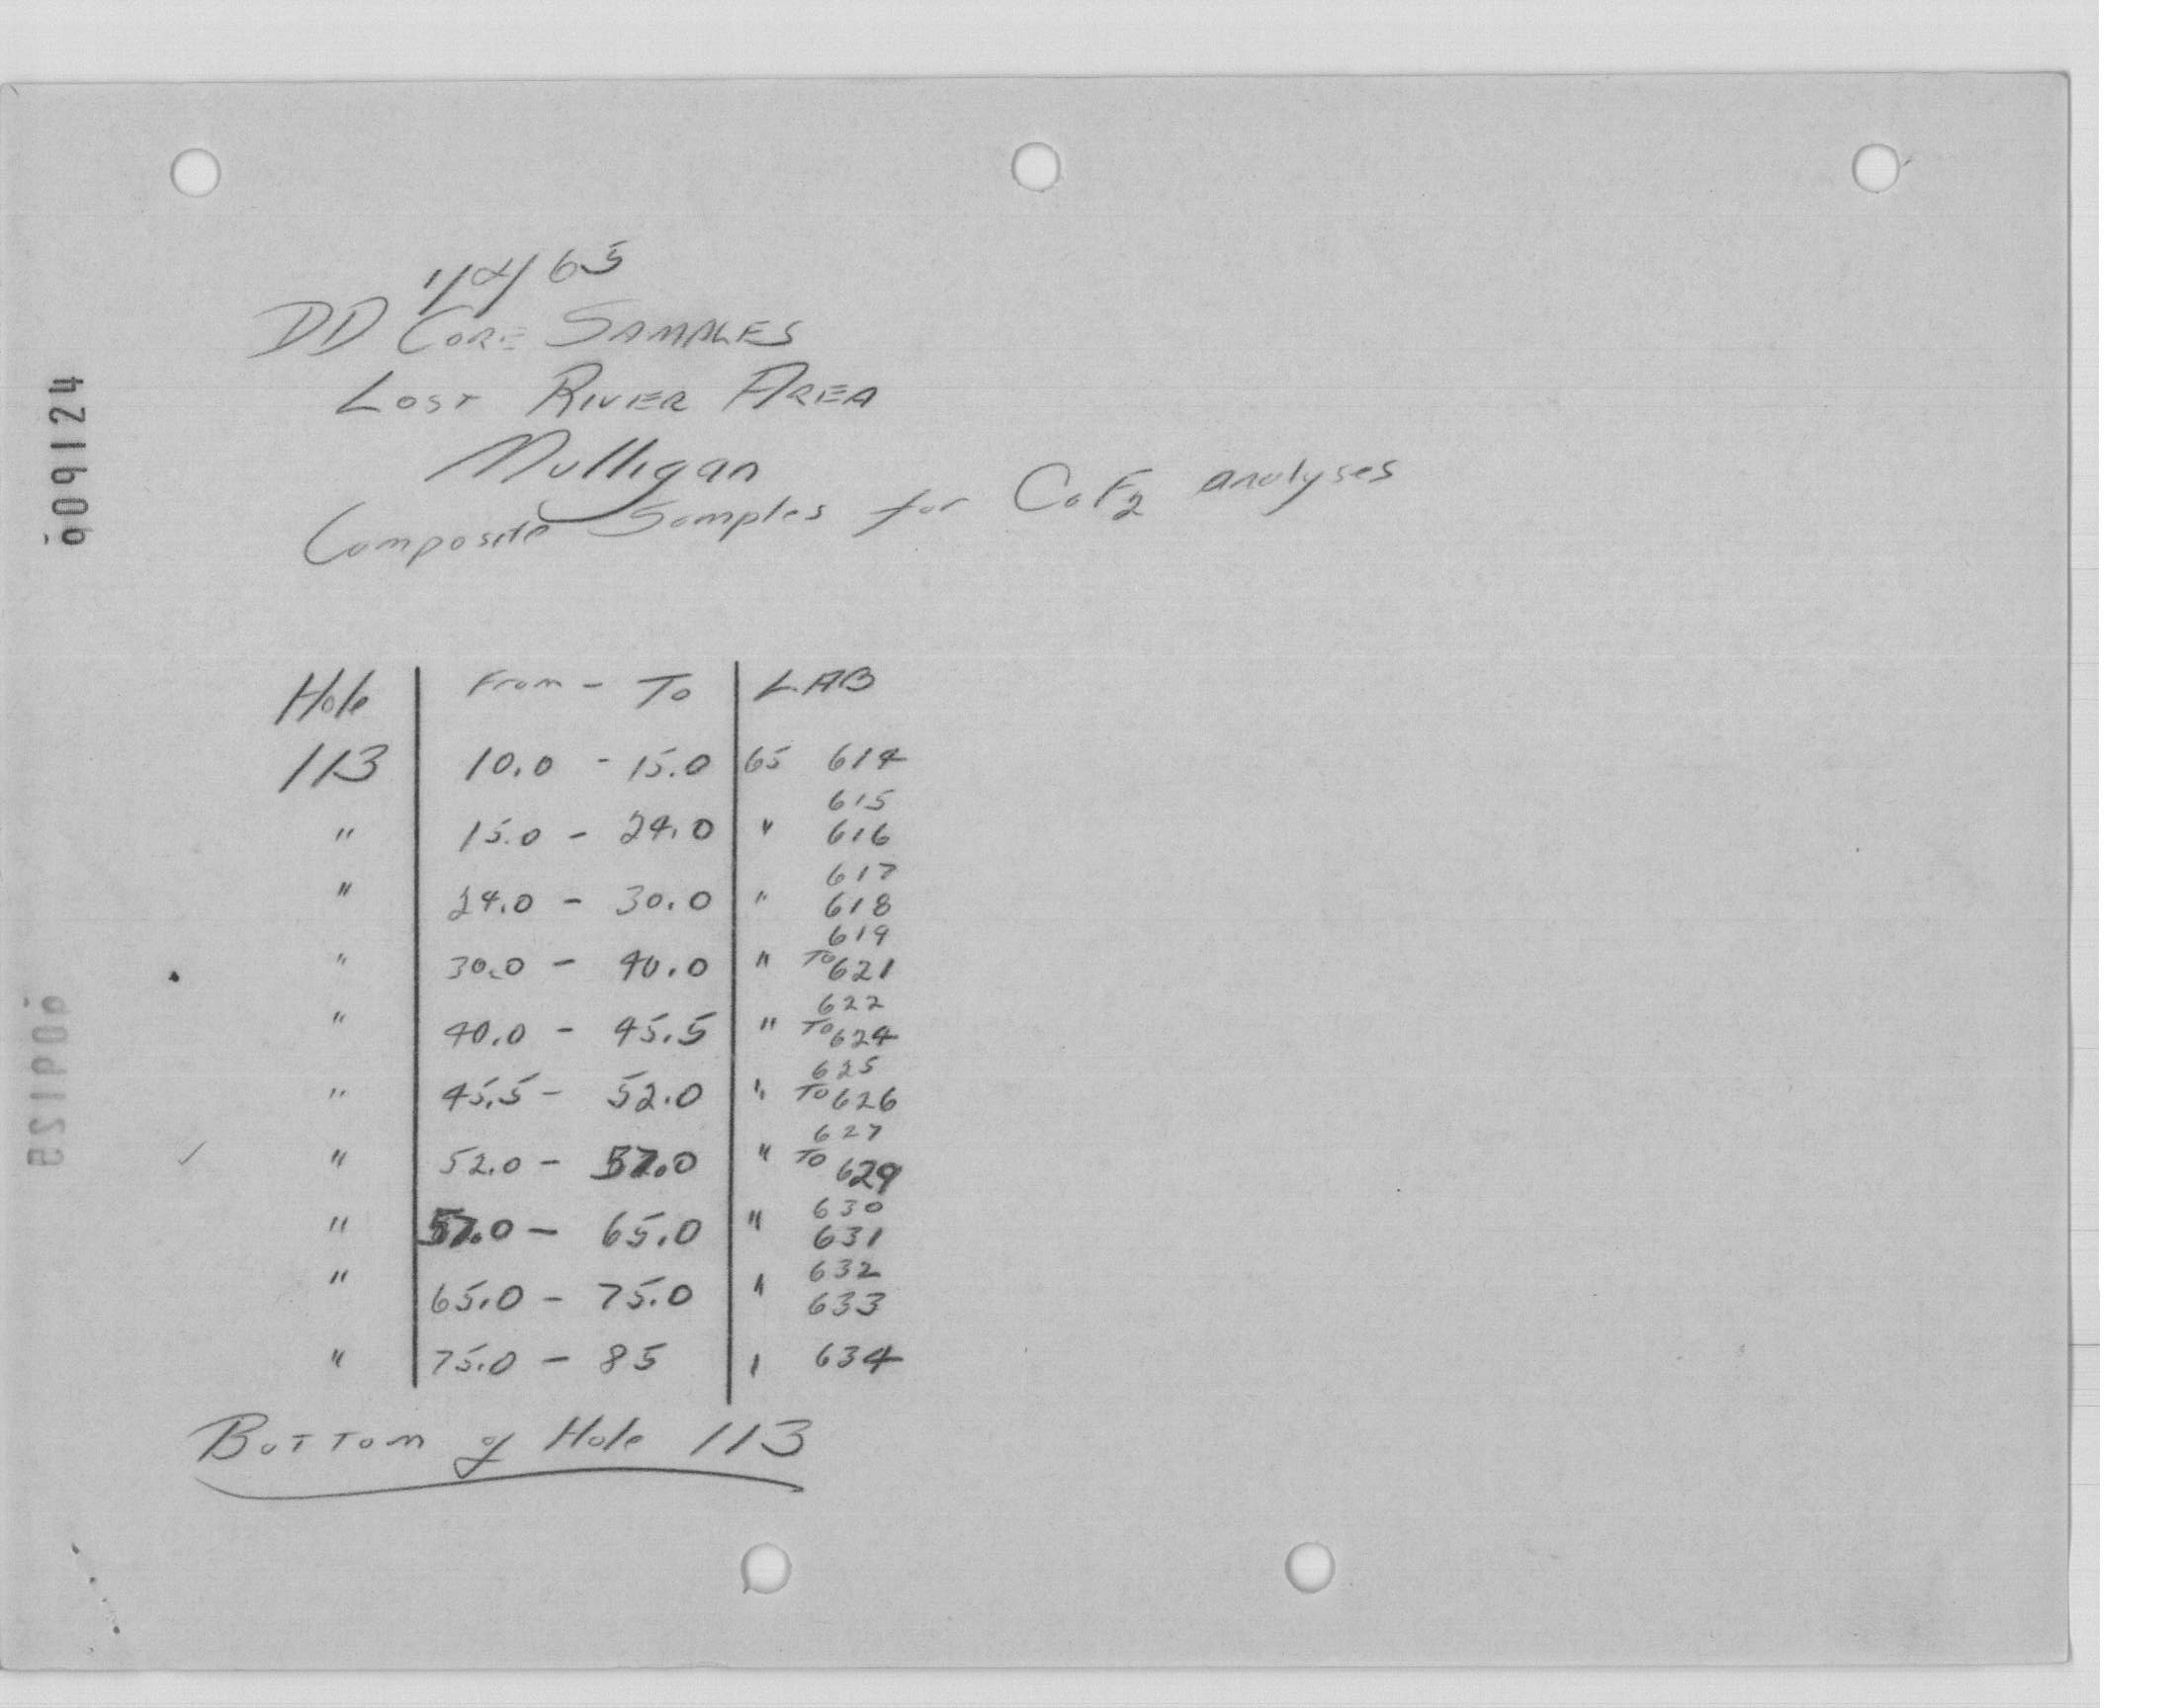 1/8/65
DD CORE SAMPLES
LOST RIVER AREA
Mulligan
Composite Samples for CaF2 analyses
Hole From - To LAB
113 10.0 - 15.0 65 614
615
" 15.0 - 24.0 " 616
617
" 24.0 - 30.0 " 618
619
" 30.0 - 40.0 " TO 621
622
" 40.0 - 45.5 " TO 624
625
" 45.5 - 52.0 " TO 626
627
" 52.0 - 57.0 " TO 629
630
" 57.0 - 65.0 " 631
632
" 65.0 - 75.0 " 633
" 75.0 - 85 " 634
BOTTOM of Hole 113
909124
909125